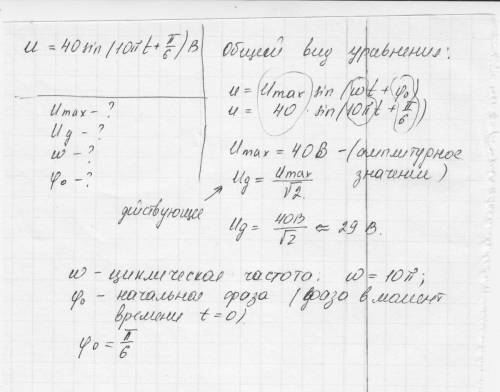 u = 40 sin (10πt + π/6) В
Umax - ?
Uд - ?
ω - ?
φ₀ - ?
Общей вид уравнения:
u = Umax sin (ωt + φ₀)
u = 40 · sin (10πt + π/6)
Umax = 40В - (амплитурное значении)
Uд = Umax/√2
действующее
Uд = 40В/√2 ≈ 29 В.
ω - циклическая частота. ω = 10π;
φ₀ - начальная фаза (фаза в момент
времени t = 0)
φ₀ = π/6